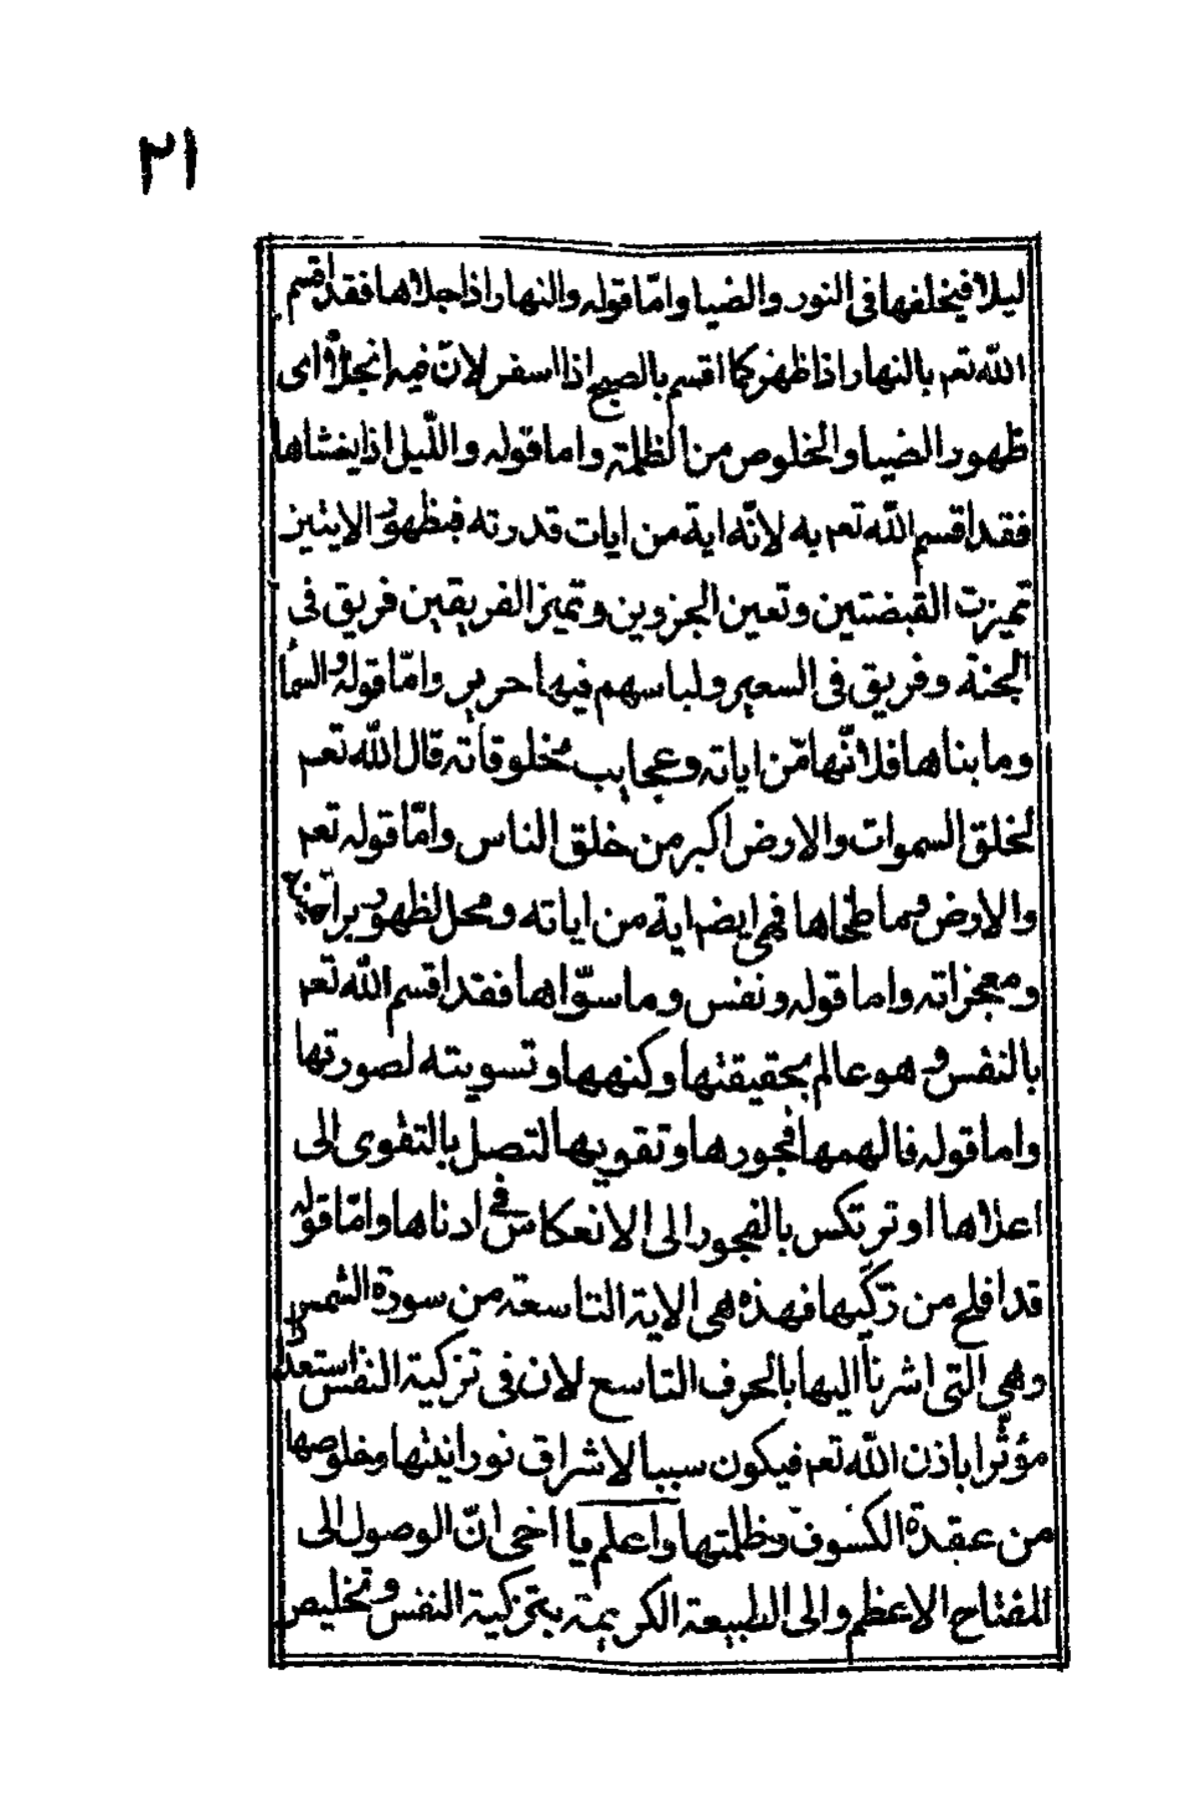 ٢١
ليلا فيخلفها فى النور والضيا وامّا قوله والنهار اذا جلاها فقد اقسم
الله تعم بالنهار اذا ظهر كما اقسم بالصبح اذا اسفر لانّ فيه انجلاؤ اى
ظهور الضيا والخلوص من الظلمة واما قوله واللّيل اذا يغشاها
فقد اقسم اللّه تعم به لانّه اية من ايات قدرته فبظهور الايتين
تميزت القبضتين وتعين الجزوين وتميز الفريقين فريق فى
الجنة وفريق فى السعير ولباسهم فيها حرير وامّا قوله والسمأ
وما بناها فلانّها من اياته وعجايب مخلوقاته قال اللّه تعم
لخلق السموات والارض اكبر من خلق الناس وامّا قوله تعم
والارض وما طحاها فهى ايضم اية من اياته ومحل لظهور
ومعجزاته واما قوله ونفس وما سوّاها فقد اقسم اللّه تعم
بالنفس وهو عالم بحقيقتها وكنهها وتسويته لصورتها
واما قوله فالهمها فجورها وتقويها لتصل بالتقوى الى
اعلاها او ترتكس بالفجور الى الانعكاس فى ادناها وامّا قوله
قد افلح من زكّيها فهذه هى الاية التاسعة من سورة الشمس
وهى التى اشرنا اليها بالحرف التاسع لان فى تزكية النفس
مؤثّرا باذن اللّه تعم فيكون سببا لاشراق نورانيتها وخلوصها
من عقدة الكسوف وظلمتها واعلم يا اخى انّ الوصول الى
المفتاح الاعظم والى الطبيعة الكريمة بتزكية النفس وتخليص